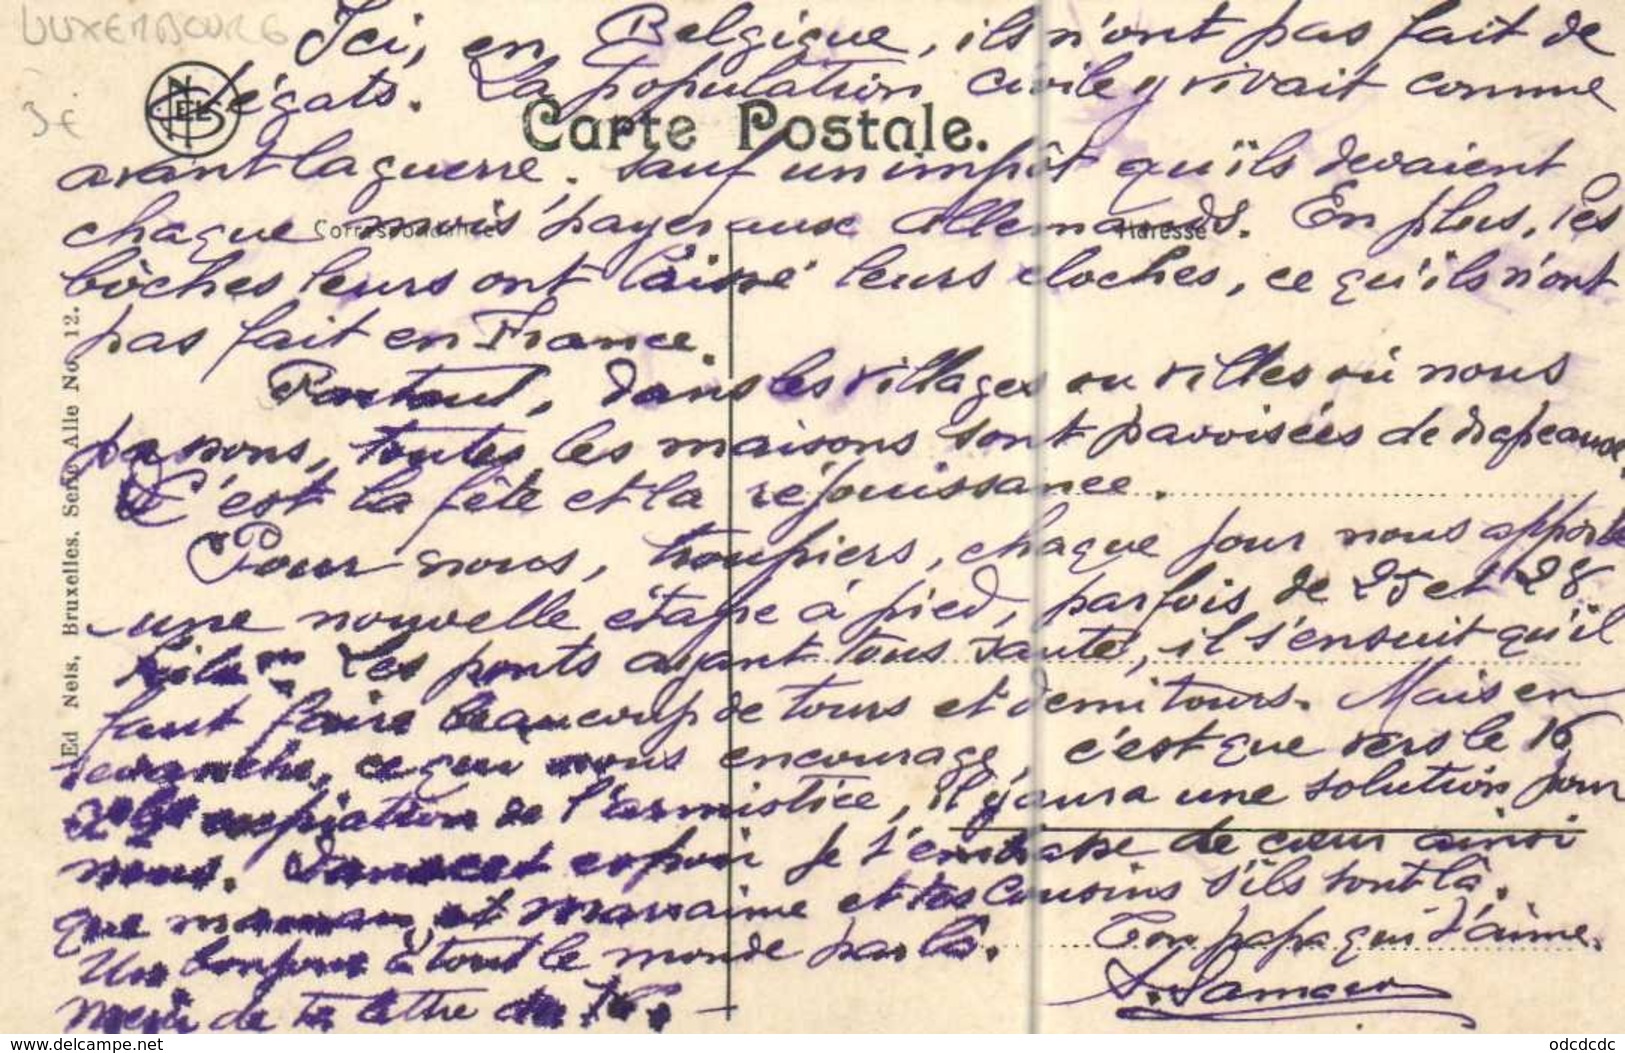 LUXEMBOURG
3€
Ici, en Belgique, ils n'ont pas fait de
dégats. La population civile y vivait comme
NELS
Carte Postale.
avant la guerre, sauf un impôt qu'ils devaient
chaque mois payer aux allemands. En plus, les
Correspondance
Adresse
bòches leurs ont laissé leurs cloches, ce qu'ils n'ont
pas fait en France.
Partout, dans les villages ou villes où nous
passons, toutes les maisons sont pavoisées de drapeaux.
C'est la fête et la réjouissance.
Pour nous, troupiers, chaque jour nous apporte
une nouvelle étape à pied, parfois de 25 et 28
kilom. Les ponts ayant tous sauté, il s'ensuit qu'il
faut faire beaucoup de tours et demi tours. Mais en
revanche, ce qui nous encourage, c'est que vers le 16
à l'expiation de l'armistice, il y aura une solution pour
nous. Dans cet espoir je t'embrasse de cœur ainsi
que maman, et marraine et tes Cousins s'ils sont là.
Un bonjour à tout le monde par là.
Ton papa qui t'aime.
Merci de ta lettre du
Ed Nels, Bruxelles. Serie Alle No 12.
www.delcampe.net
odcdcdc